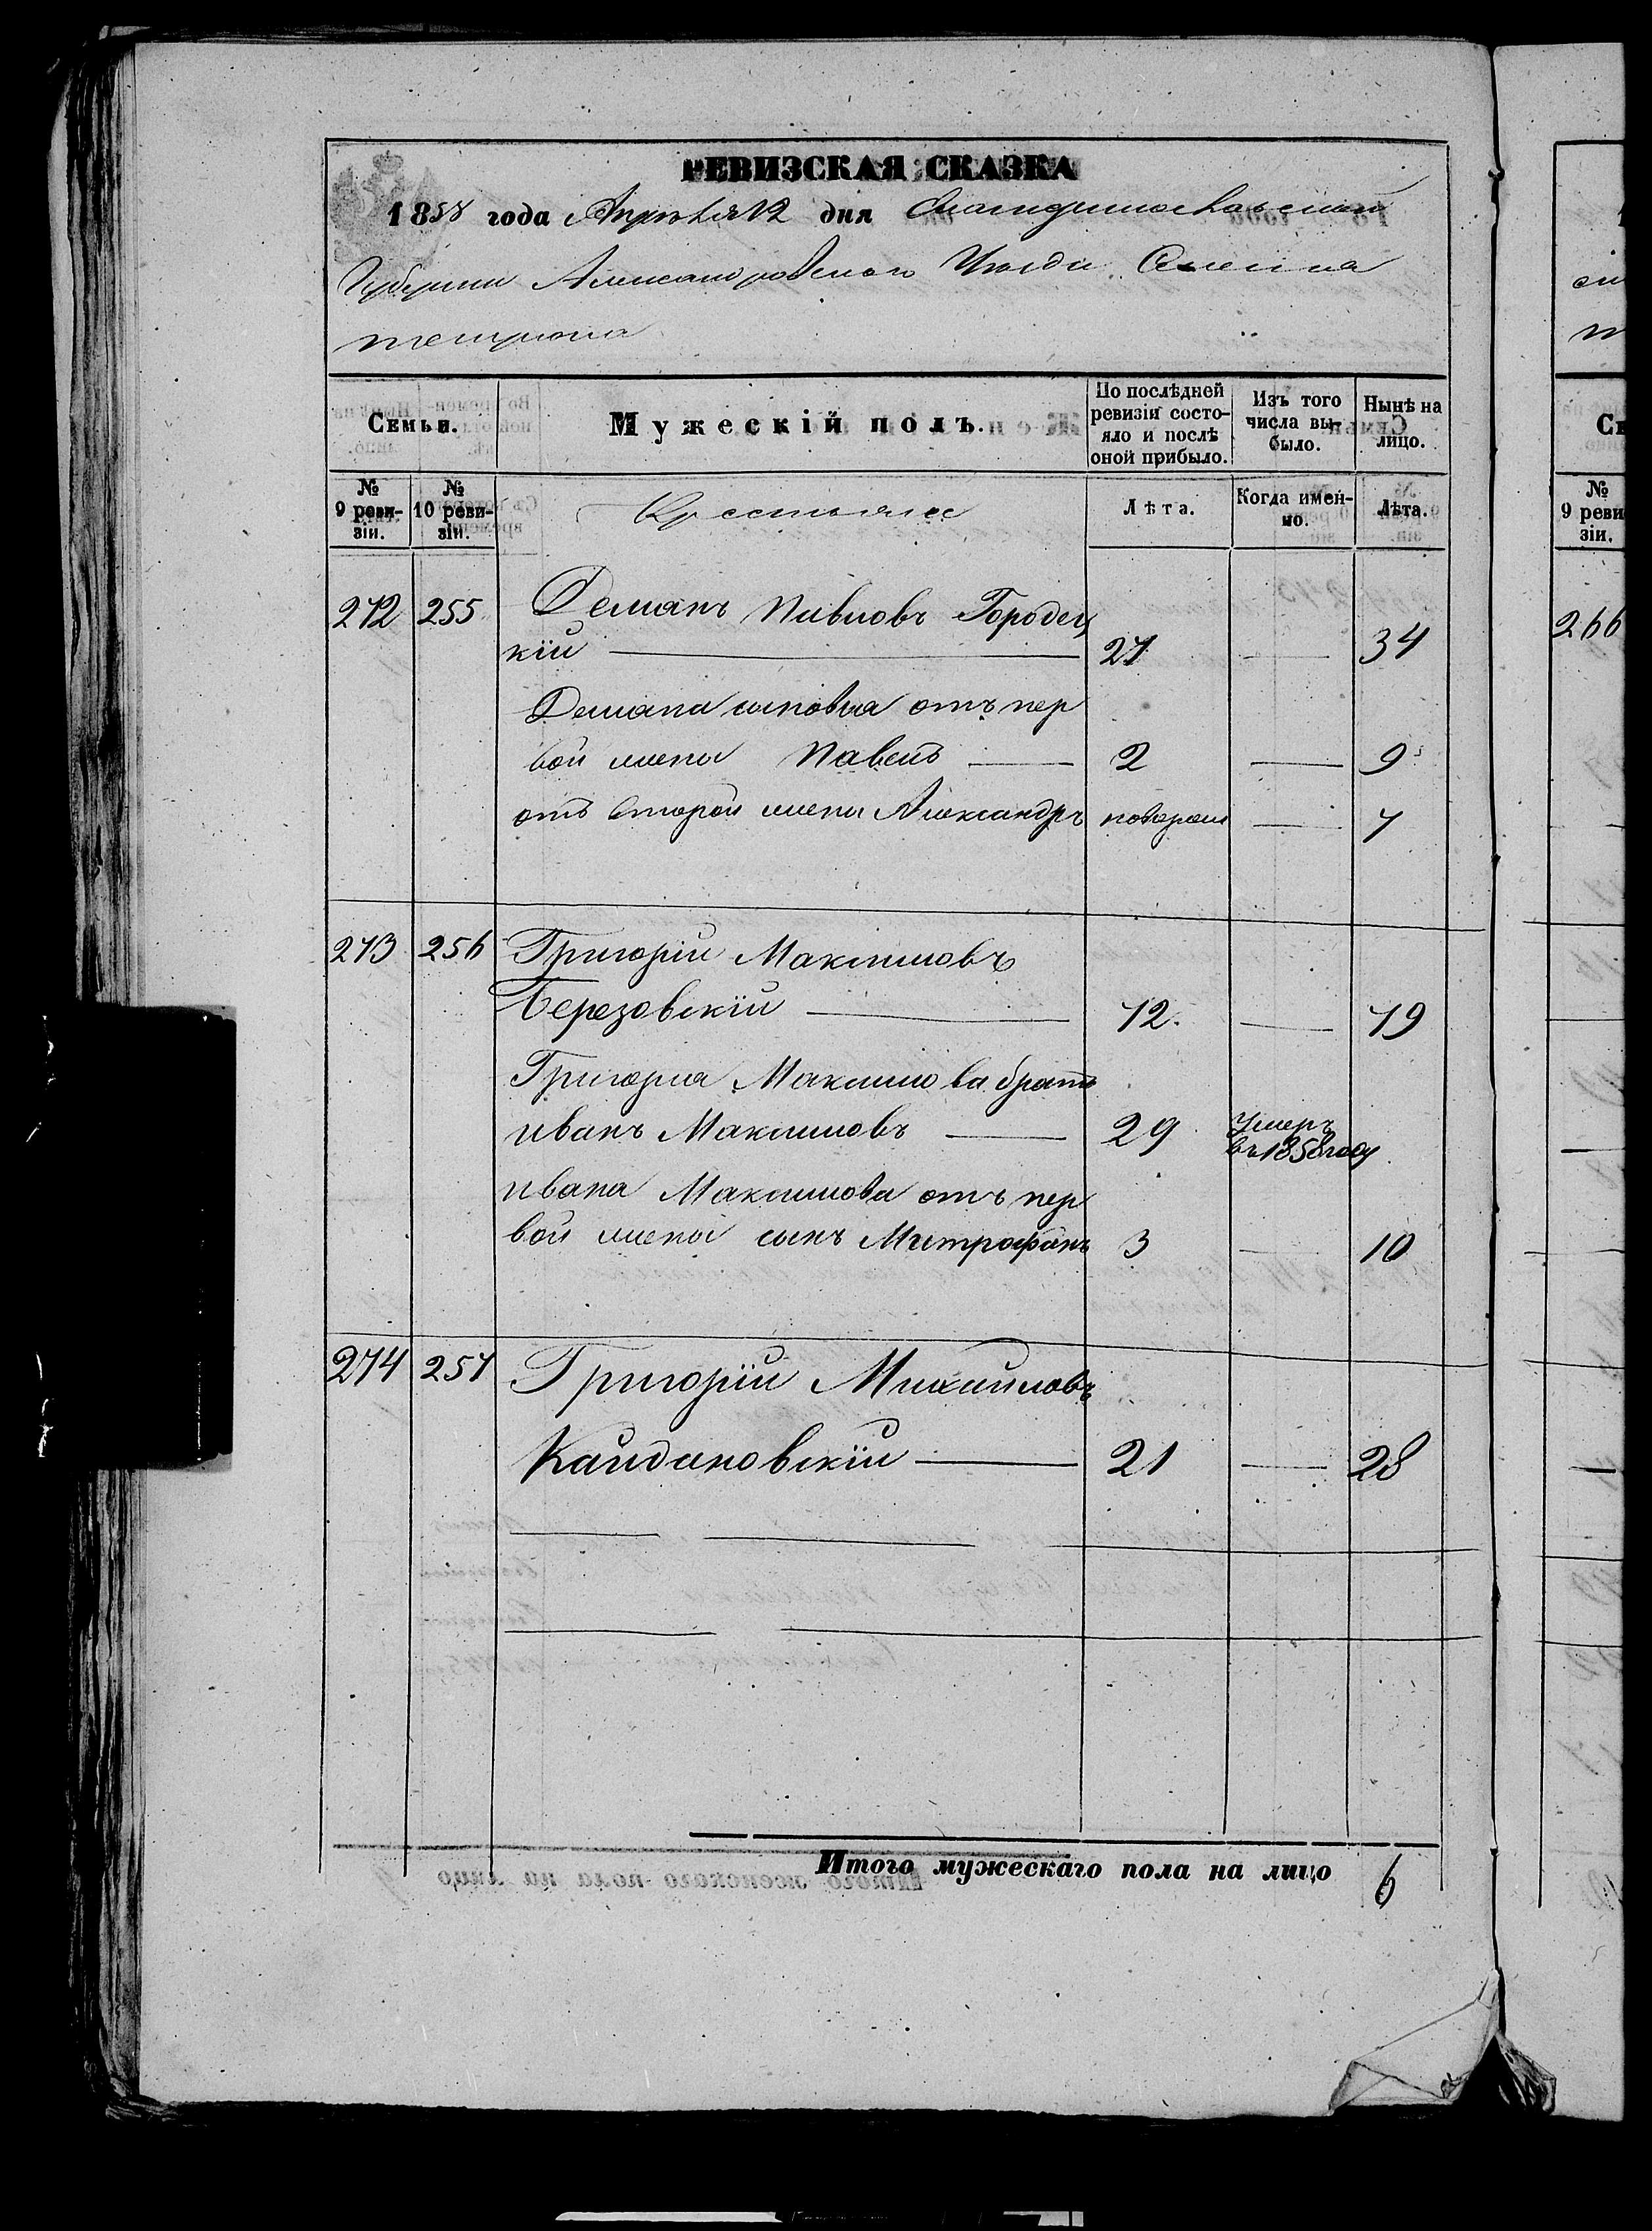 РЕВИЗСКАЯ СКАЗКА
1858 года Апреля 12 дня Екатеринославской
Губернии Александровского Уезда Села
Семьи.
Мужескій полъ.
По послѣдней ревизіи состояло и послѣ оной прибыло.
Изъ того числа выбыло.
Нынѣ на лицо.
№ 9 ревизіи.
№ 10 ревизіи.
Крестьяне
Лѣта.
Когда именно.
Лѣта.
272 255 Демьянъ Павловъ Городец
кій 27 34
Демьяна сыновья отъ пер
вой жены Павелъ 2 9
отъ второй жены Александръ 7
273 256 Григорій Максимовъ
Березовскій 12. 19
Григорія Максимова братъ
иванъ Максимовъ 29 Умеръ
въ 1858 году
ивана Максимова отъ пер
вой жены сынъ Митрофанъ 3 10
274 257 Григорій Михайловъ
Кайдановскій 21 28
Итого мужескаго пола на лицо 6
№
9 реви
зіи.
266